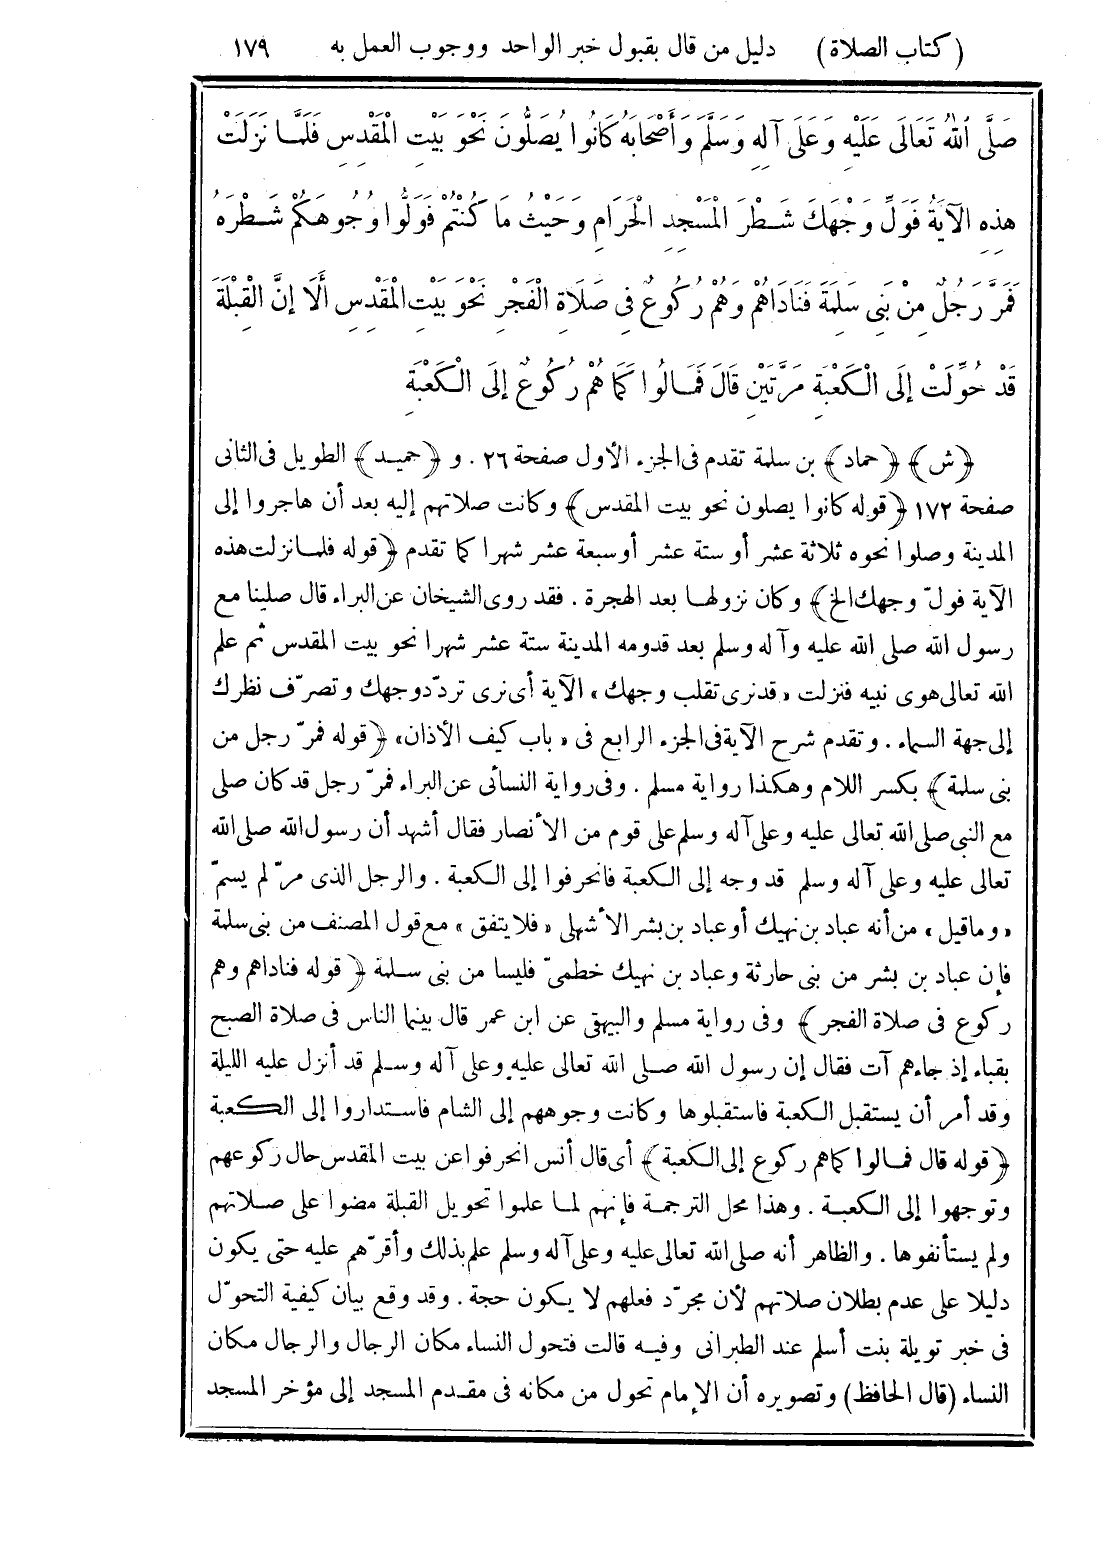 (كتاب الصلاة) دليل من قال بقبول خبر الواحد ووجوب العمل به ١٧٩
صَلَّى اللهُ تَعَالَى عَلَيْهِ وَعَلَى آلِهِ وَسَلَّمَ وَأَصْحَابَهُ كَانُوا يُصَلُّونَ نَحْوَ بَيْتِ الْمَقْدِسِ فَلَمَّا نَزَلَتْ
هذِهِ الآيَةُ فَوَلِّ وَجْهَكَ شَطْرَ الْمَسْجِدِ الْحَرَامِ وَحَيْثُ مَا كُنْتُمْ فَوَلُّوا وُجُوهَكُمْ شَطْرَهُ
فَمَرَّ رَجُلٌ مِنْ بَنِي سَلِمَةَ فَنَادَاهُمْ وَهُمْ رُكُوعٌ فِي صَلَاةِ الْفَجْرِ نَحْوَ بَيْتِ الْمَقْدِسِ أَلَا إِنَّ الْقِبْلَةَ
قَدْ حُوِّلَتْ إِلَى الْكَعْبَةِ مَرَّتَيْنِ قَالَ فَمَالُوا كَمَا هُمْ رُكُوعٌ إِلَى الْكَعْبَةِ
﴿ش﴾ ﴿حماد﴾ بن سلمة تقدم فى الجزء الأول صفحة ٢٦ . و ﴿حميد﴾ الطويل فى الثانى
صفحة ١٧٢ ﴿قوله كانوا يصلون نحو بيت المقدس﴾ وكانت صلاتهم إليه بعد أن هاجروا إلى
المدينة وصلوا نحوه ثلاثة عشر أو ستة عشر أو سبعة عشر شهرا كما تقدم ﴿قوله فلما نزلت هذه
الآية فولّ وجهك الخ﴾ وكان نزولها بعد الهجرة . فقد روى الشيخان عن البراء قال صلينا مع
رسول الله صلى الله عليه وآله وسلم بعد قدومه المدينة ستة عشر شهرا نحو بيت المقدس ثم علم
الله تعالى هوى نبيه فنزلت «قد نرى تقلب وجهك» الآية أى نرى تردّد وجهك وتصرّف نظرك
إلى جهة السماء . وتقدم شرح الآية فى الجزء الرابع فى «باب كيف الأذان» ﴿قوله فمرّ رجل من
بنى سلمة﴾ بكسر اللام وهكذا رواية مسلم . وفى رواية النسائى عن البراء فمرّ رجل قد كان صلى
مع النبى صلى الله تعالى عليه وعلى آله وسلم على قوم من الأنصار فقال أشهد أن رسول الله صلى الله
تعالى عليه وعلى آله وسلم قد وجه إلى الكعبة فانحرفوا إلى الكعبة . والرجل الذى مرّ لم يسمّ
«وما قيل» من أنه عباد بن نهيك أو عباد بن بشر الأشهلى «فلا يتفق» مع قول المصنف من بنى سلمة
فإن عباد بن بشر من بنى حارثة وعباد بن نهيك خطمىّ فليسا من بنى سلمة ﴿قوله فناداهم وهم
ركوع فى صلاة الفجر﴾ وفى رواية مسلم والبيهقى عن ابن عمر قال بينما الناس فى صلاة الصبح
بقباء إذ جاءهم آت فقال إن رسول الله صلى الله تعالى عليه وعلى آله وسلم قد أنزل عليه الليلة
وقد أمر أن يستقبل الكعبة فاستقبلوها وكانت وجوههم إلى الشام فاستداروا إلى الكعبة
﴿قوله قال فمالوا كما هم ركوع إلى الكعبة﴾ أى قال أنس انحرفوا عن بيت المقدس حال ركوعهم
وتوجهوا إلى الكعبة . وهذا محل الترجمة فإنهم لما علموا تحويل القبلة مضوا على صلاتهم
ولم يستأنفوها . والظاهر أنه صلى الله تعالى عليه وعلى آله وسلم علم بذلك وأقرّهم عليه حتى يكون
دليلا على عدم بطلان صلاتهم لأن مجرّد فعلهم لا يكون حجة . وقد وقع بيان كيفية التحوّل
فى خبر تويلة بنت أسلم عند الطبرانى وفيه قالت فتحول النساء مكان الرجال والرجال مكان
النساء (قال الحافظ) وتصويره أن الإمام تحول من مكانه فى مقدم المسجد إلى مؤخر المسجد